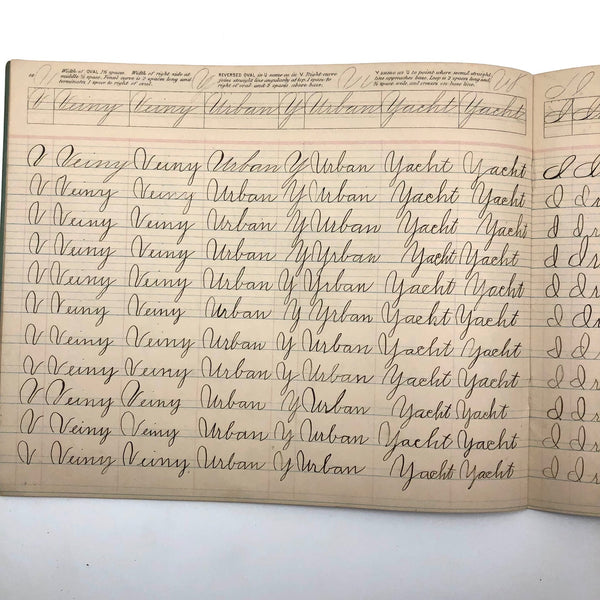 Width of OVAL 1½ spaces. Width of right side at
middle ½ space. Final curve is 2 spaces long and
terminates 1 space to right of oval.
REVERSED OVAL in U same as in V. Right curve
joins straight line angularly at top, 1 space to
right of oval and 2 spaces above base.
Y same as U to point where second straight
line approaches base. Loop is 2 spaces long and
½ space wide, and crosses on base line.
V Veiny Urban Y Yacht Yacht
V Veiny Veiny Urban Y Urban Yacht Yacht
V Veiny Veiny Urban Y Urban Yacht Yacht
V Veiny Veiny Urban Y Urban Yacht Yacht
V Veiny Veiny Urban Y Yrban Yacht Yacht
V Veiny Veiny Urban Y Yrban Yacht Yacht
V Veiny Veiny Urban Y Urban Yacht Yacht
V Veiny Veiny Urban Y Urban Yacht Yacht
V Veiny Veiny Urban Y Urban Yacht Yacht
V Veiny Veiny Urban Y Urban Yacht Yacht
V Veiny Veiny Urban Y Urban Yacht Yacht
V Veiny Veiny Urban Y Urban Yacht Yacht